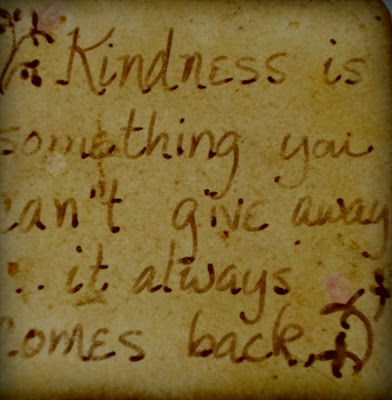 Kindness is
something you
can't give away
... it always
comes back.